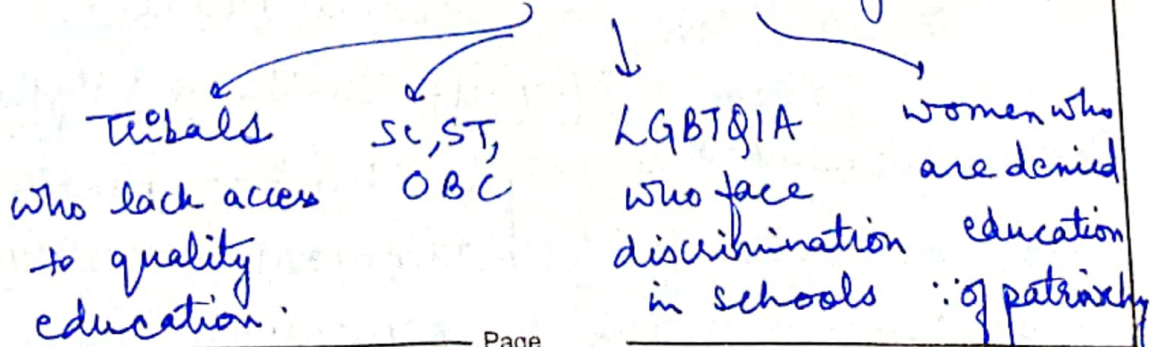 Tribals
who lack access
to quality
education.
SC, ST,
OBC
LGBTQIA
who face
discrimination
in schools
women who
are denied
education
∵ of patriarchy
Page